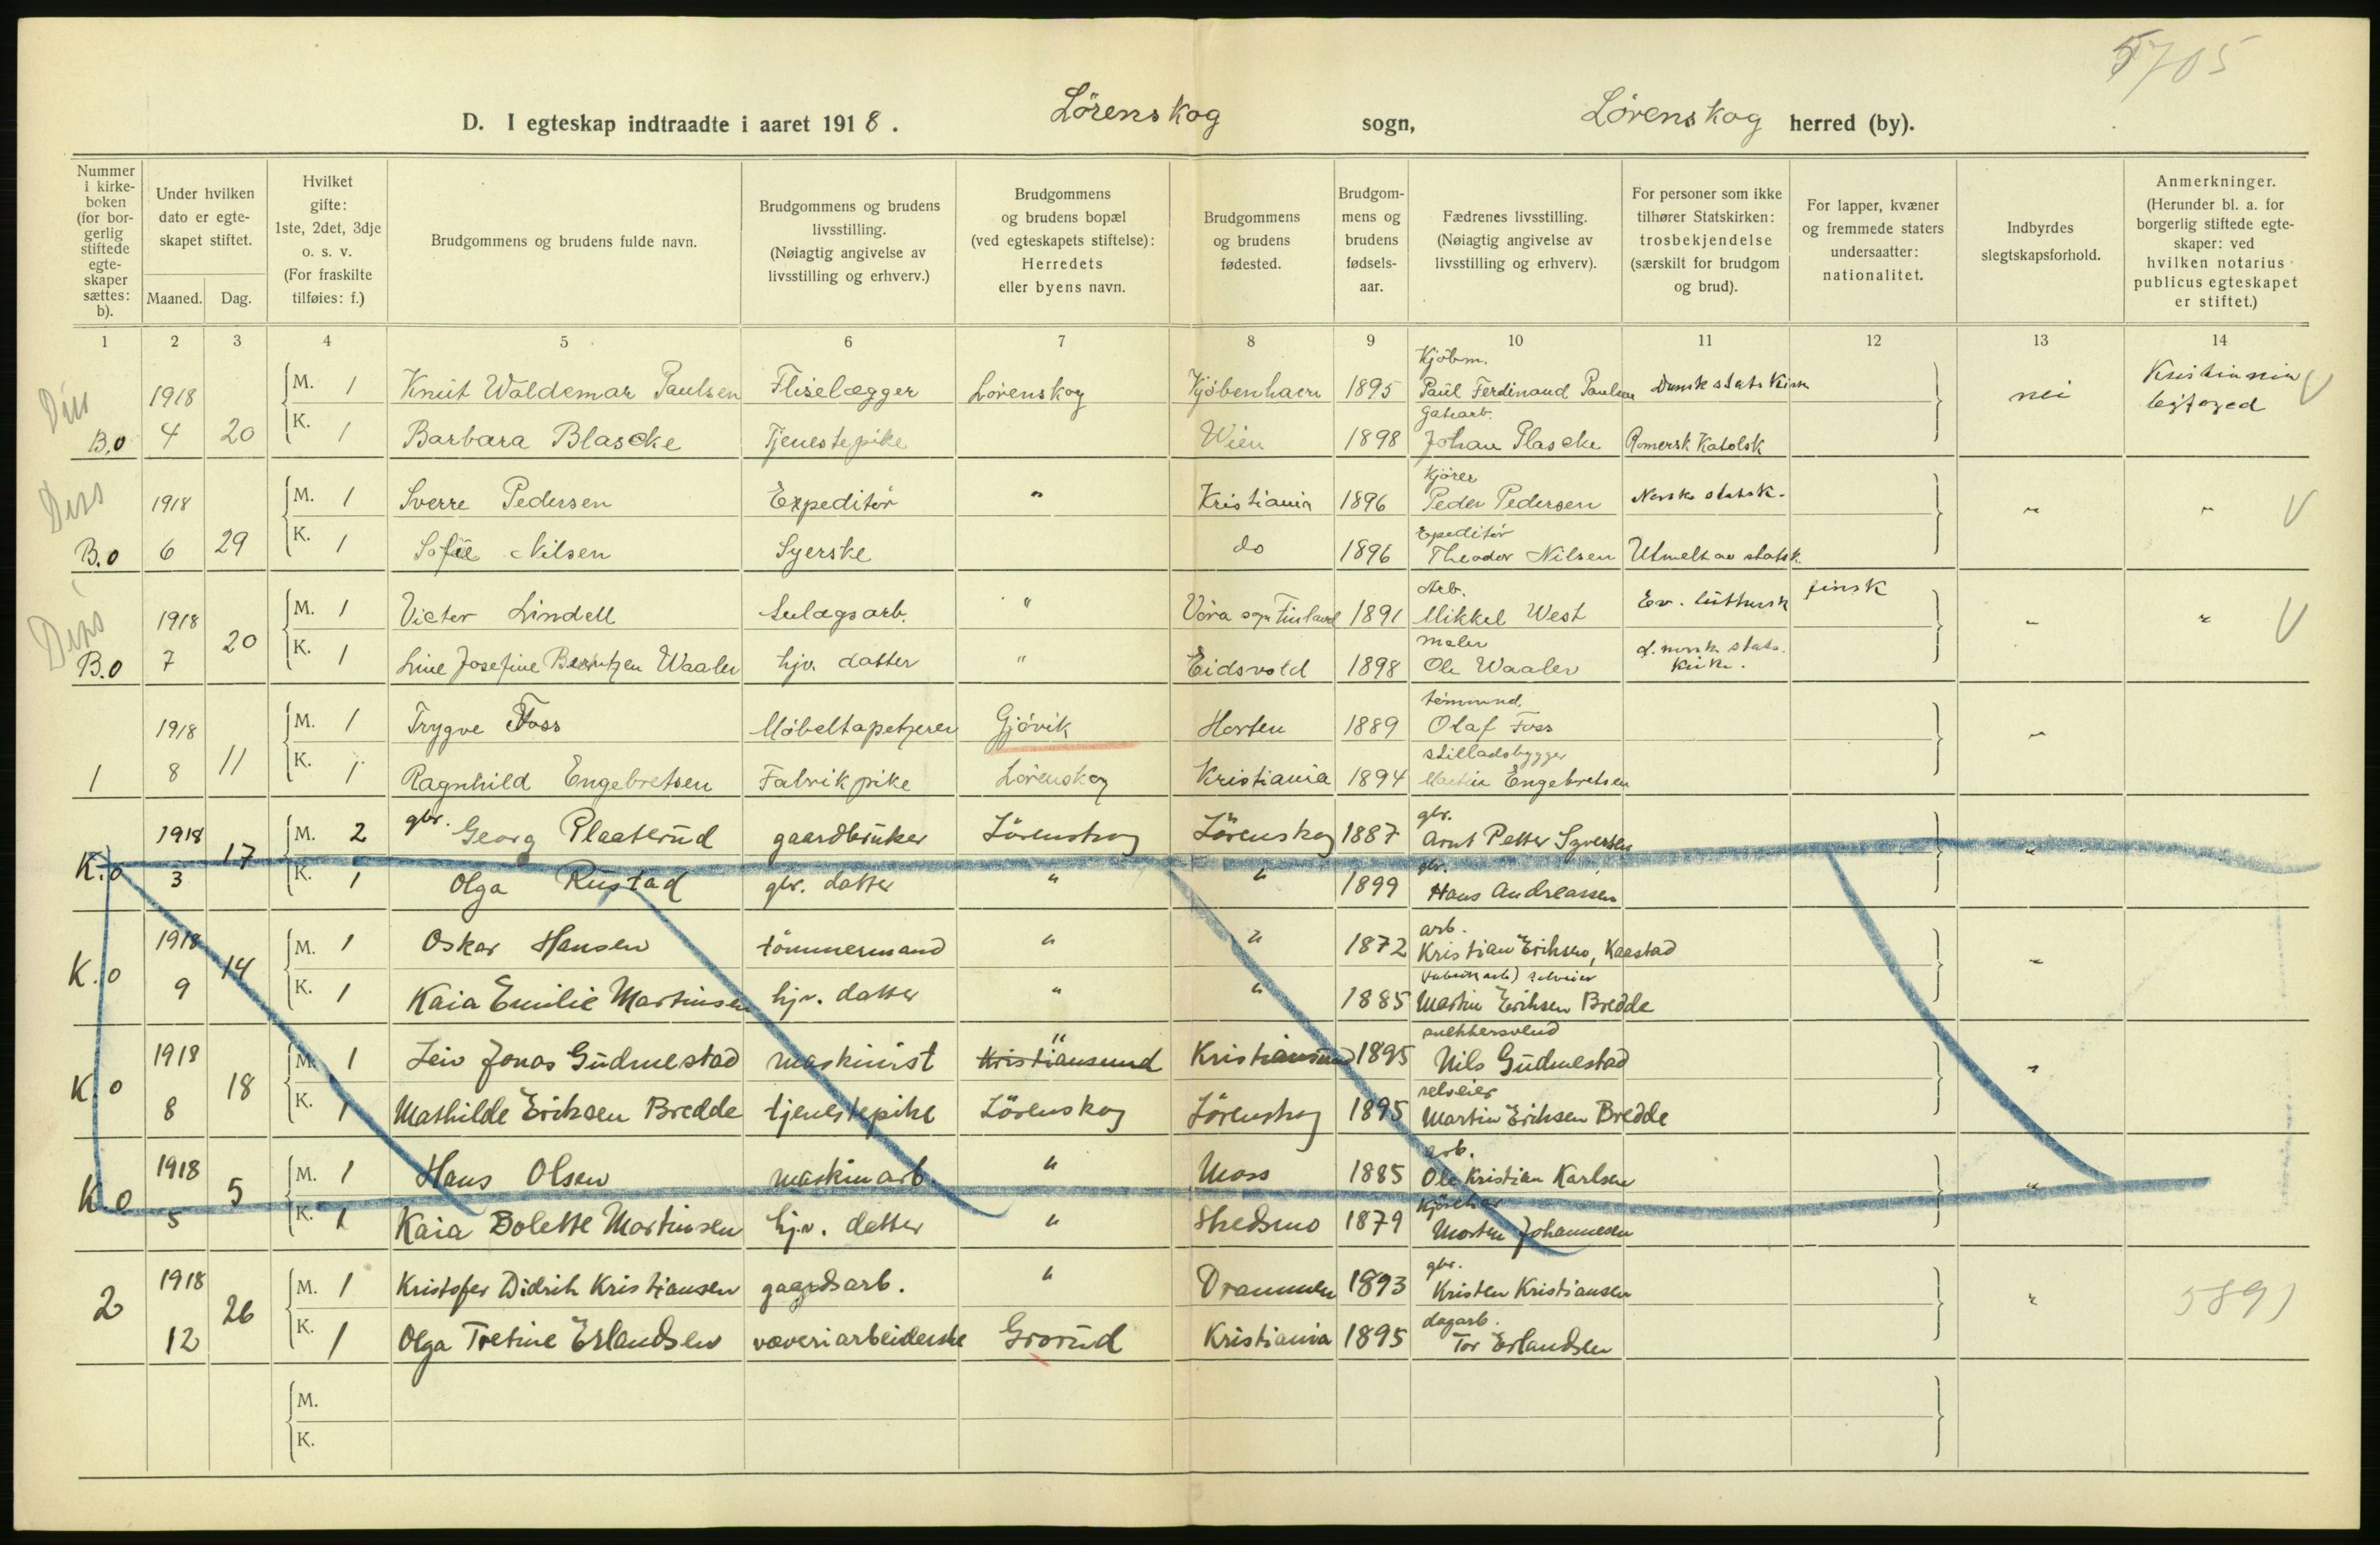 5705
D. I egteskap indtraadte i aaret 1918. Lörenskog sogn, Lörenskog herred (by).
Nummer i kirkeboken (for borgerlig stiftede egteskaper sættes: b).
Under hvilken dato er egteskapet stiftet.
Maaned. Dag.
Hvilket gifte: 1ste, 2det, 3dje o. s. v. (For fraskilte tilføies: f.)
Brudgommens og brudens fulde navn.
Brudgommens og brudens livsstilling. (Nøiagtig angivelse av livsstilling og erhverv.)
Brudgommens og brudens bopæl (ved egteskapets stiftelse): Herredets eller byens navn.
Brudgommens og brudens fødested.
Brudgommens og brudens fødselsaar.
Fædrenes livsstilling. (Nøiagtig angivelse av livsstilling og erhverv).
For personer som ikke tilhører Statskirken: trosbekjendelse (særskilt for brudgom og brud).
For lapper, kvæner og fremmede staters undersaatter: nationalitet.
Indbyrdes slegtskapsforhold.
Anmerkninger. (Herunder bl. a. for borgerlig stiftede egteskaper: ved hvilken notarius publicus egteskapet er stiftet.)
1 2 3 4 5 6 7 8 9 10 11 12 13 14
Kjöbm.
1918 M. 1 Knut Waldemar Paulsen Fliselægger Lörenskog Kjöbenhavn 1895 Paul Ferdinand Paulsen Dansk stats Kirke nei Kristiania byfoged V
Gatearb.
B.O 4 20 K. 1 Barbara Blascke Tjenestepike Wien 1898 Johan Plascke Romersk Katolsk
Kjörer
1918 M. 1 Sverre Pedersen Expeditör " Kristiania 1896 Peder Pedersen Norske statsk. " " V
Expeditör
B.O 6 29 K. 1 Sofie Nilsen Syerske do 1896 Theodor Nilsen Utmeldt av statsk.
Arb.
1918 M. 1 Victor Lindell Sulagsarb. " Vöra sogn Finland 1891 Mikkel West Ev. luthersk finsk " " V
maler
B.O 7 20 K. 1 Line Josefine Berntzen Waaler hjv. datter " Eidsvold 1898 Ole Waaler d. norske stats. Kirke.
tömmmd.
1918 M. 1 Trygve Foss Möbeltapetserer Gjövik Horten 1889 Olaf Foss "
stilladsbygger
1 8 11 K. 1 Ragnhild Engebretsen Fabrikpike Lörenskog Kristiania 1894 Martin Engebretsen
gbr. gbr.
1918 M. 2 Georg Plaaterud gaardbruker Lörenskog Lörenskog 1887 Arnt Petter Syversen "
gbr.
K.O 3 17 K. 1 Olga Rustad gbr. datter " " 1899 Hans Andreassen
arb.
1918 M. 1 Oskar Hansen tömmermand " " 1872 Kristian Eriksen, Kaastad "
(fabrikarb) selveier
K.O 9 14 K. 1 Kaia Emilie Martinsen hjv. datter " " 1885 Martin Eriksen Bredde
snekkersvend
1918 M. 1 Leiv Jonas Gudmestad maskinist " Kristiansund Kristiansund 1895 Nils Gudmestad "
selveier
K.O 8 18 K. 1 Mathilde Eriksen Bredde tjenestepike Lörenskog Lörenskog 1895 Martin Eriksen Bredde
arb.
1918 M. 1 Hans Olsen maskinarb. " Moss 1885 Ole Kristian Karlsen "
K.O 5 5 K. 1 Kaia Bolette Martinsen hjv. datter " Skedsmo 1879 Morten Johannesen
gbr.
1918 M. 1 Kristofer Didrik Kristiansen gaardsarb. " Drammen 1893 Kristen Kristiansen " 5891
dagarb.
2 12 26 K. 1 Olga Tretine Erlandsen væveriarbeiderske Grorud Kristiania 1895 Tor Erlandsen
M.
K.